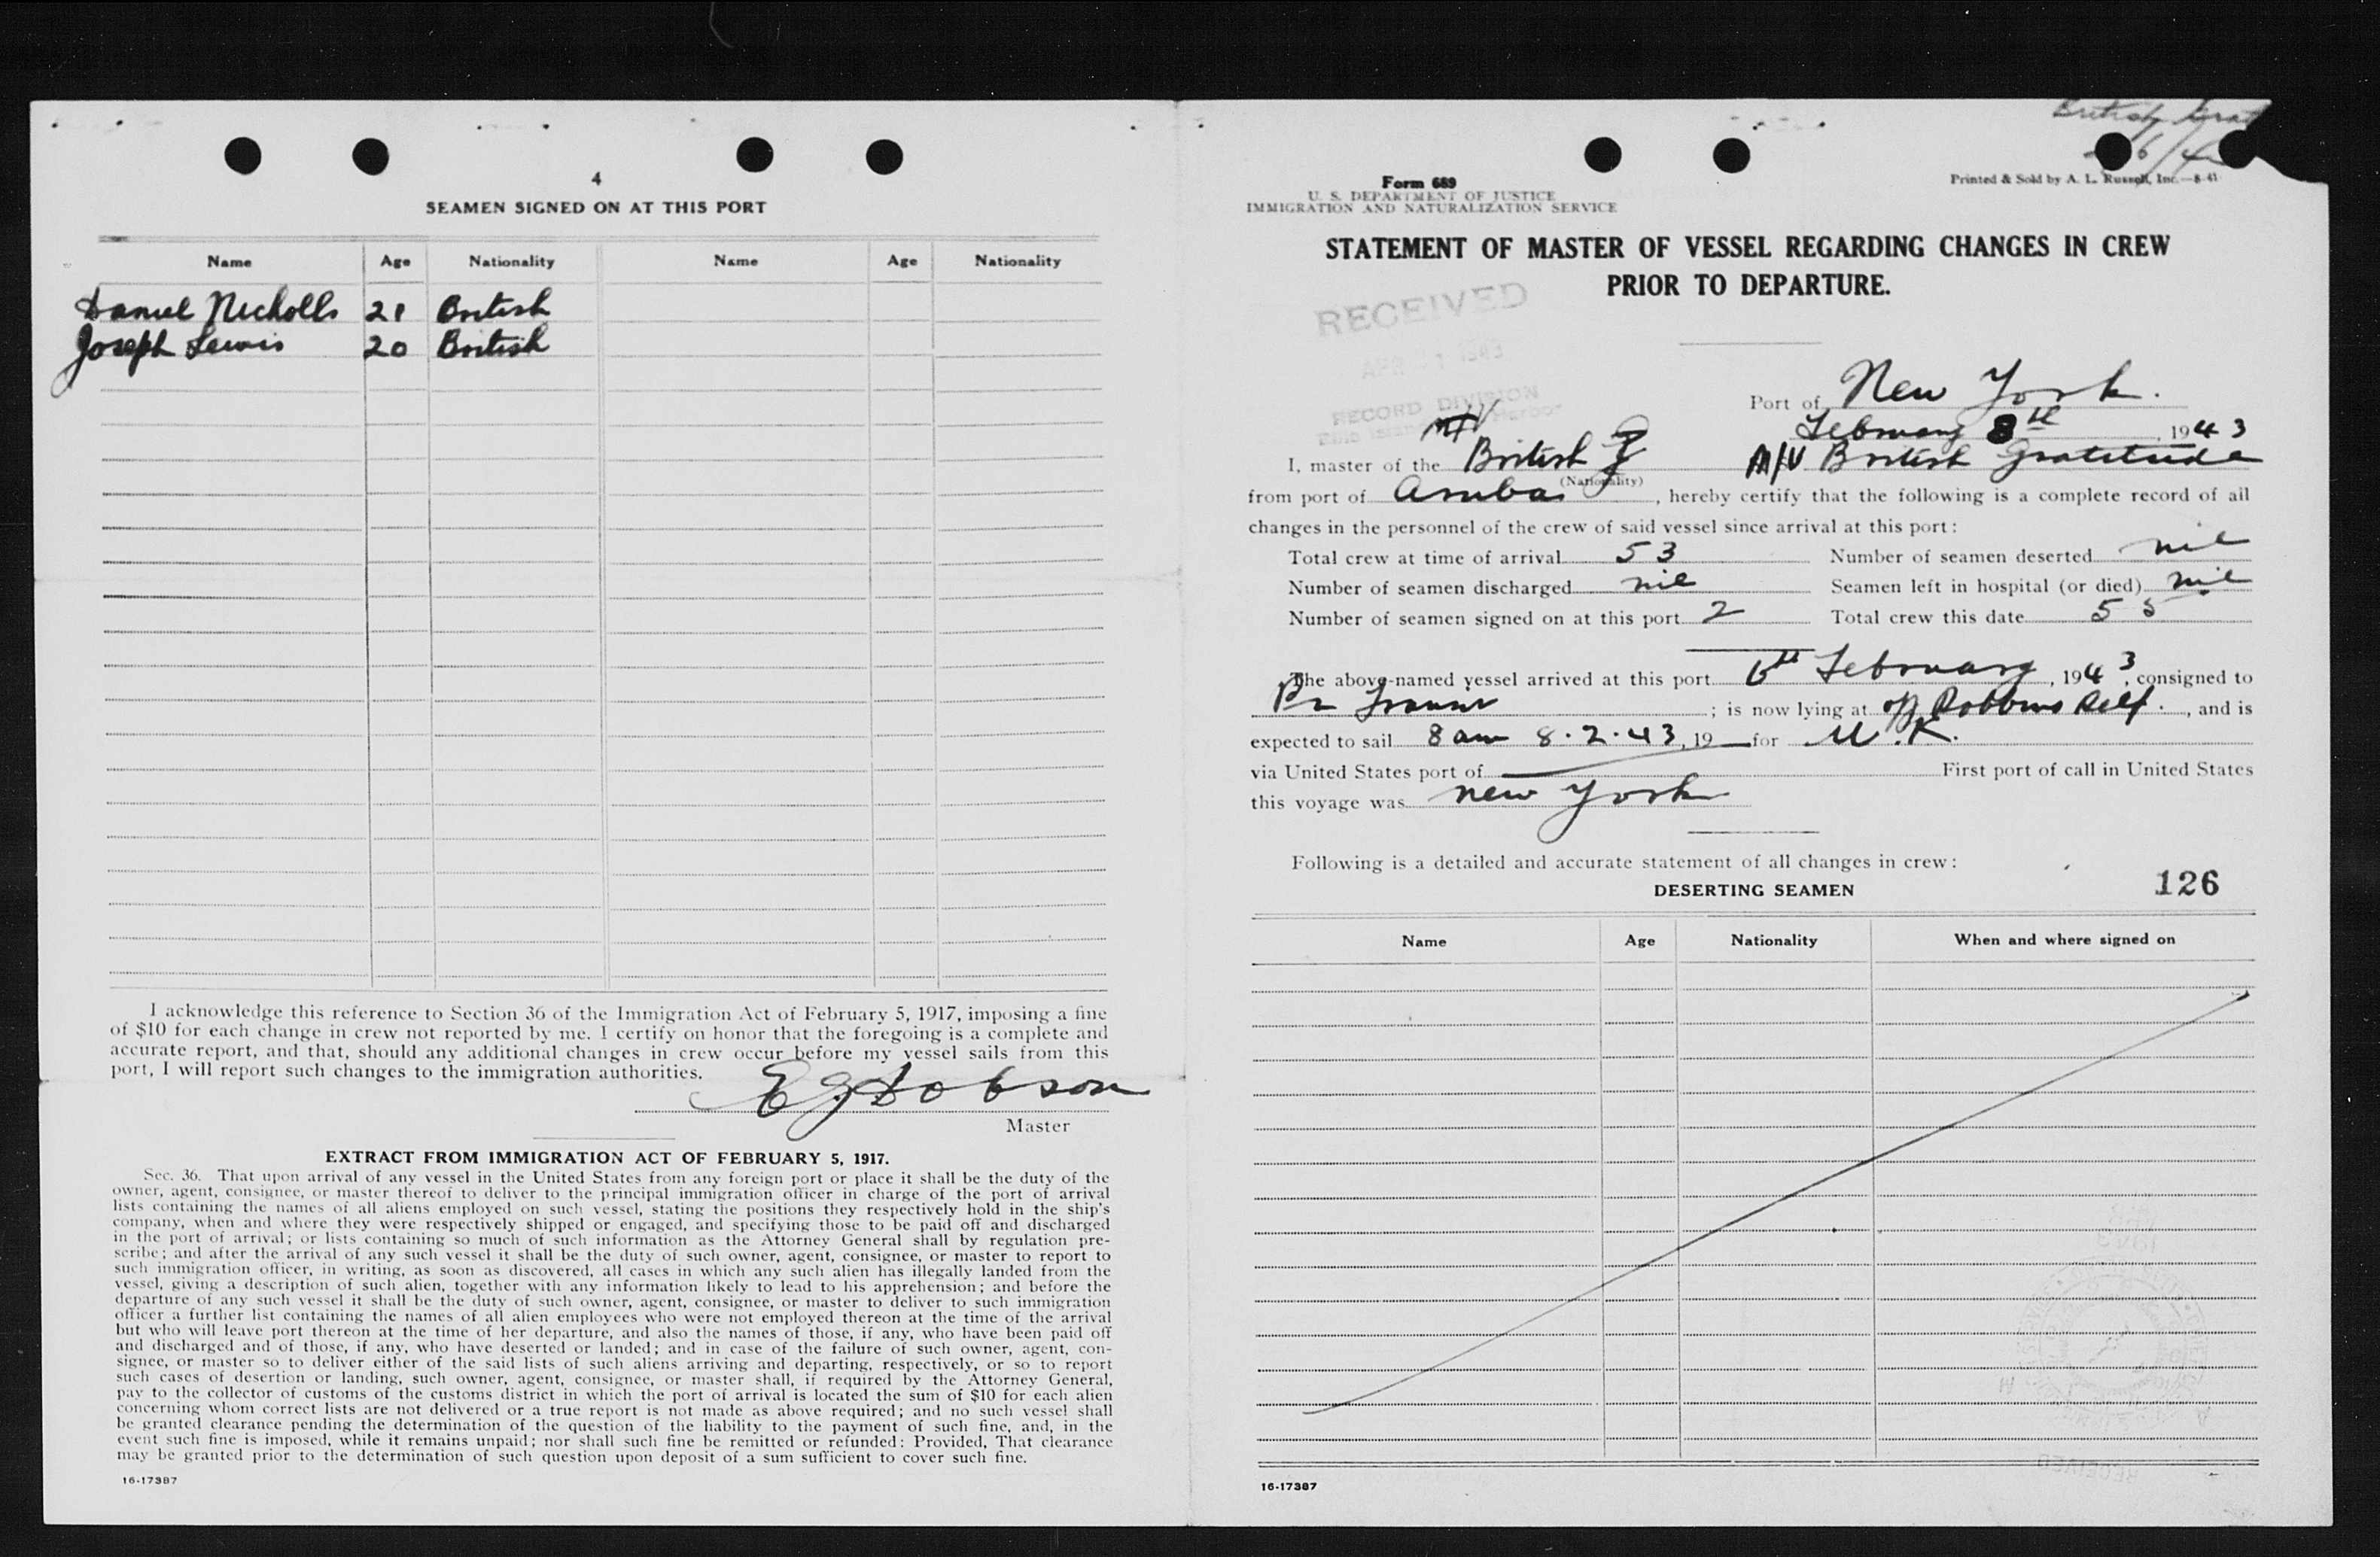 4
SEAMEN SIGNED ON AT THIS PORT
Name Age Nationality Name Age Nationality
Daniel Nicholls 21 British
Joseph Lewis 20 British
I acknowledge this reference to Section 36 of the Immigration Act of February 5, 1917, imposing a fine
of $10 for each change in crew not reported by me. I certify on honor that the foregoing is a complete and
accurate report, and that, should any additional changes in crew occur before my vessel sails from this
port, I will report such changes to the immigration authorities.
E G Dobson
Master
EXTRACT FROM IMMIGRATION ACT OF FEBRUARY 5, 1917.
Sec. 36. That upon arrival of any vessel in the United States from any foreign port or place it shall be the duty of the
owner, agent, consignee, or master thereof to deliver to the principal immigration officer in charge of the port of arrival
lists containing the names of all aliens employed on such vessel, stating the positions they respectively hold in the ship's
company, when and where they were respectively shipped or engaged, and specifying those to be paid off and discharged
in the port of arrival; or lists containing so much of such information as the Attorney General shall by regulation pre-
scribe; and after the arrival of any such vessel it shall be the duty of such owner, agent, consignee, or master to report to
such immigration officer, in writing, as soon as discovered, all cases in which any such alien has illegally landed from the
vessel, giving a description of such alien, together with any information likely to lead to his apprehension; and before the
departure of any such vessel it shall be the duty of such owner, agent, consignee, or master to deliver to such immigration
officer a further list containing the names of all alien employees who were not employed thereon at the time of the arrival
but who will leave port thereon at the time of her departure, and also the names of those, if any, who have been paid off
and discharged and of those, if any, who have deserted or landed; and in case of the failure of such owner, agent, con-
signee, or master so to deliver either of the said lists of such aliens arriving and departing, respectively, or so to report
such cases of desertion or landing, such owner, agent, consignee, or master shall, if required by the Attorney General,
pay to the collector of customs of the customs district in which the port of arrival is located the sum of $10 for each alien
concerning whom correct lists are not delivered or a true report is not made as above required; and no such vessel shall
be granted clearance pending the determination of the question of the liability to the payment of such fine, and, in the
event such fine is imposed, while it remains unpaid; nor shall such fine be remitted or refunded: Provided, That clearance
may be granted prior to the determination of such question upon deposit of a sum sufficient to cover such fine.
16-17387
British Grat
Form 689
U. S. DEPARTMENT OF JUSTICE
IMMIGRATION AND NATURALIZATION SERVICE
Printed & Sold by A. L. Russell, Inc.—8-41
STATEMENT OF MASTER OF VESSEL REGARDING CHANGES IN CREW
PRIOR TO DEPARTURE.
RECEIVED
1943
RECORD DIVISION
Port of New York.
February 8th, 1943
I, master of the British M/V British Gratitude
(Nationality)
from port of Aruba, hereby certify that the following is a complete record of all
changes in the personnel of the crew of said vessel since arrival at this port:
Total crew at time of arrival 53 Number of seamen deserted nil
Number of seamen discharged nil Seamen left in hospital (or died) nil
Number of seamen signed on at this port 2 Total crew this date 55
The above-named vessel arrived at this port 6th February, 1943, consigned to
; is now lying at off Robbins Reef., and is
expected to sail 8 am 8.2.43, 19 for U.K.
via United States port of First port of call in United States
this voyage was New York
Following is a detailed and accurate statement of all changes in crew:
DESERTING SEAMEN 126
Name Age Nationality When and where signed on
RECEIVED
16-17387